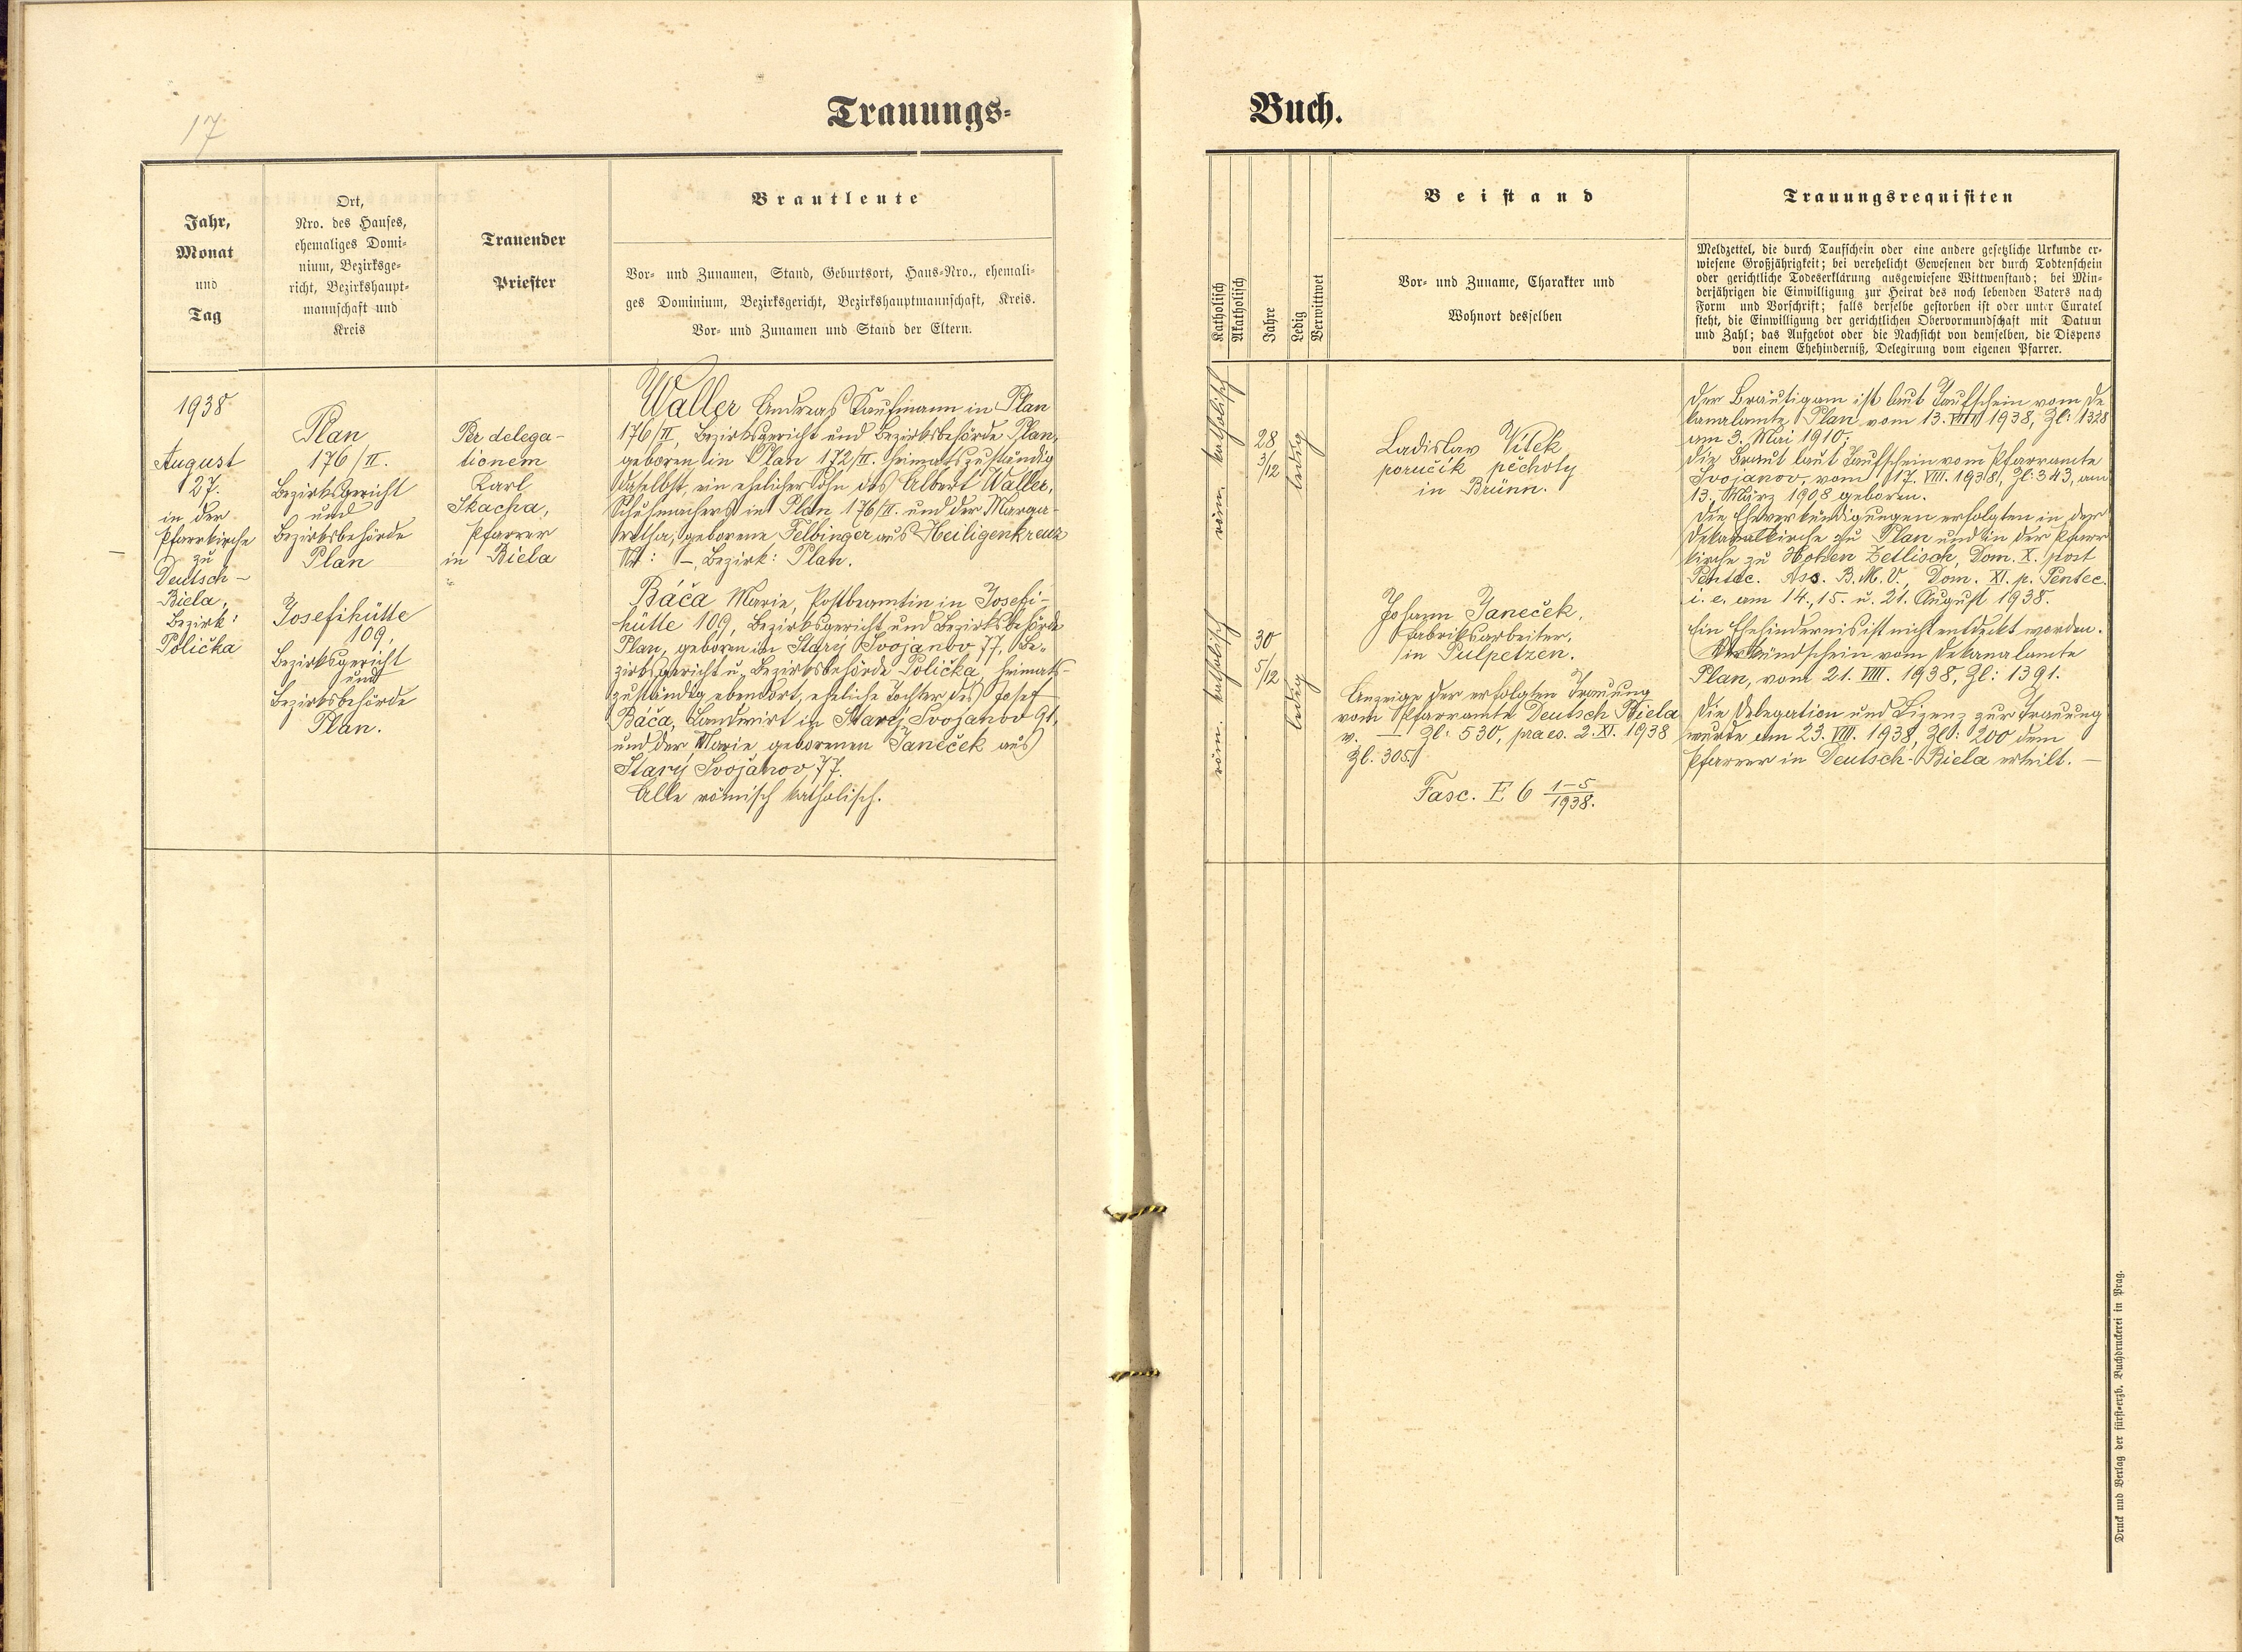 17
Trauungs-
Jahr,
Monat
und
Tag
Ort,
Nro. des Hauses,
ehemaliges Domi-
nium, Bezirksge-
richt, Bezirkshaupt-
mannschaft und
Kreis
Trauender
Priester
Brautleute
Vor- und Zunamen, Stand, Geburtsort, Haus-Nro., ehemali-
ges Dominium, Bezirksgericht, Bezirkshauptmannschaft, Kreis.
Vor- und Zunamen und Stand der Eltern.
1938
August
27.
in der
Pfarrkirche
zu
Deutsch-
Biela,
Bezirk:
Polička
Plan
176/II.
Bezirksgericht
und
Bezirksbehörde
Plan
Josefihütte
109,
Bezirksgericht
und
Bezirksbehörde
Plan.
Per delega-
tionem
Karl
Skacha,
Pfarrer
in Biela
Waller Andreas Kaufmann in Plan
176/II, Bezirksgericht und Bezirksbehörde Plan,
geboren in Plan 172/II. heimatszuständig
daselbst, ein ehelicher Sohn des Albert Waller,
Schuhmachers in Plan 176/II. und der Marga-
retha, geborene Felbinger aus Heiligenkreuz
Nr: –, Bezirk: Plan.
Báča Marie, Postbeamtin in Josefi-
hütte 109, Bezirksgericht und Bezirksbehörde
Plan, geboren in Starý Svojanov 77, Be-
zirksgericht u. Bezirksbehörde Polička, heimats-
zuständig ebendort, eheliche Tochter des Josef
Báča, Landwirt in Starý Svojanov 91,
und der Marie geborenen Janeček aus
Starý Svojanov 77.
Alle römisch katholisch.
Buch.
Katholisch
Akatholisch
Jahre
Ledig
Verwittwet
Beistand
Vor- und Zuname, Charakter und
Wohnort desselben
Trauungsrequisiten
Meldzettel, die durch Taufschein oder eine andere gesetzliche Urkunde er-
wiesene Großjährigkeit; bei verehelicht Gewesenen der durch Todtenschein
oder gerichtliche Todeserklärung ausgewiesene Wittwenstand; bei Min-
derjährigen die Einwilligung zur Heirat des noch lebenden Vaters nach
Form und Vorschrift; falls derselbe gestorben ist oder unter Curatel
steht, die Einwilligung der gerichtlichen Obervormundschaft mit Datum
und Zahl; das Aufgebot oder die Nachsicht von demselben, die Dispens
von einem Ehehinderniß, Delegirung vom eigenen Pfarrer.
röm. katholisch
28
3/12
ledig
röm. katholisch
30
5/12
ledig
Ladislav Vítek
poručík pěchoty
in Brünn.
Johann Janeček,
Fabriksarbeiter,
in Pulpetzen.
Anzeige der erfolgten Trauung
vom Pfarramte Deutsch Biela
v. — Zl: 530, praes. 2. XI. 1938
Zl. 305.
Fasc. E 6 1–5/1938.
Der Bräutigam ist laut Taufschein vom De
kanalamte Plan vom 13. VIII 1938, Zl: 1328
am 3. Mai 1910.
Die Braut laut Taufschein vom Pfarramte
Svojanov, vom 17. VIII. 1938, Zl. 343, am
13. März 1908 geboren.
Die Eheverkündigungen erfolgten in der
Dekanalkirche zu Plan und in der Pfarr
kirche zu Hohen Zetlisch, Dom. X. post
Pentec. Ass. B. M. V., Dom. XI. p. Pentec.
i. e. am 14., 15. u. 21. August 1938.
Ein Ehehindernis ist nicht entdeckt worden.
Verkündschein vom Dekanalamte
Plan, vom 21. VIII. 1938, Zl: 1391.
Die Delegation und Lizenz zur Trauung
wurde am 23. VIII. 1938, Zl: 200 dem
Pfarrer in Deutsch-Biela erteilt. —
Druck und Verlag der fürst-erzb. Buchdruckerei in Prag.